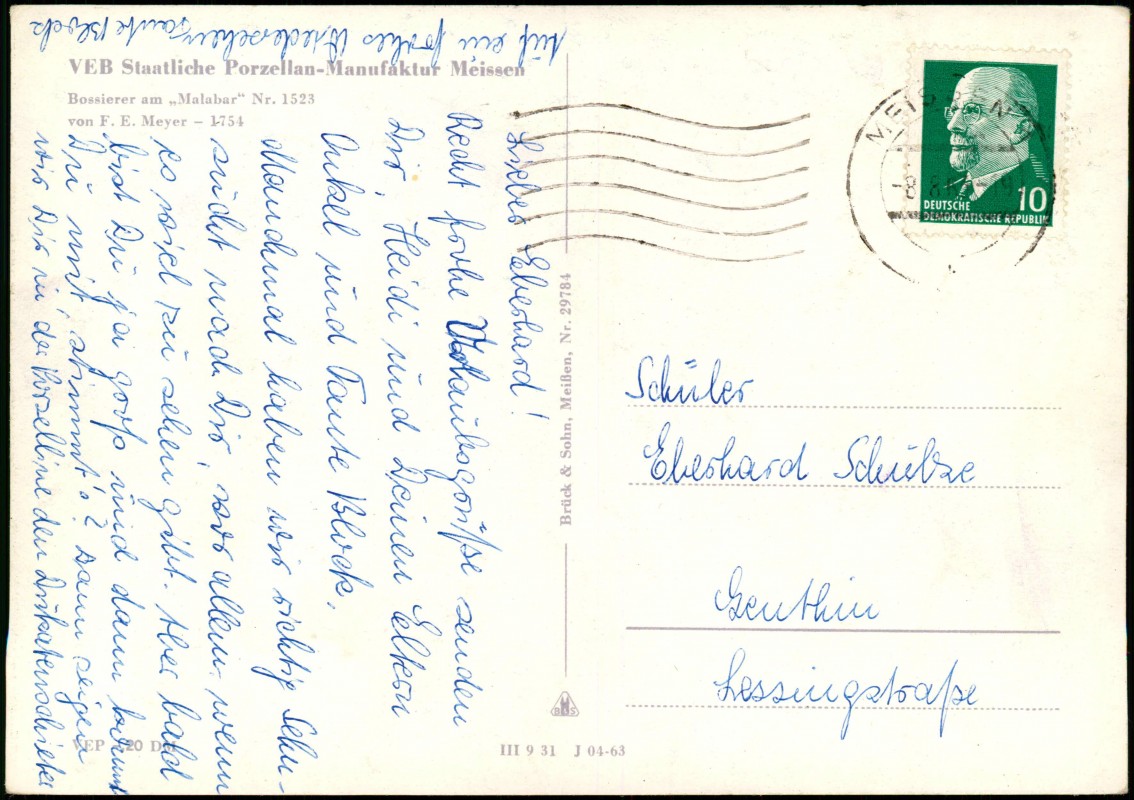 VEB Staatliche Porzellan-Manufaktur Meissen
Bossierer am „Malabar“ Nr. 1523
von F. E. Meyer – 1754
Lieber Eberhard!
Recht frohe Urlaubsgrüße senden
Dir, Heidi und Deinen Eltern
Onkel und Tante Block.
Manchmal haben wir richtig Sehn-
sucht nach Dir, vor allem, wenn
es viel zu sehen gibt. Aber bald
bist Du ja groß und dann kommst
Du mit, stimmt's? Dann zeigen
wir Dir in der
Auf ein frohes Wiedersehen Tante Block
VEP 0,20 DM
III 9 31 J 04-63
Brück & Sohn, Meißen, Nr. 29784
B&S
MEISSEN
10
DEUTSCHE
DEMOKRATISCHE REPUBLIK
Schüler
Eberhard Schulze
Genthin
Lessingstraße